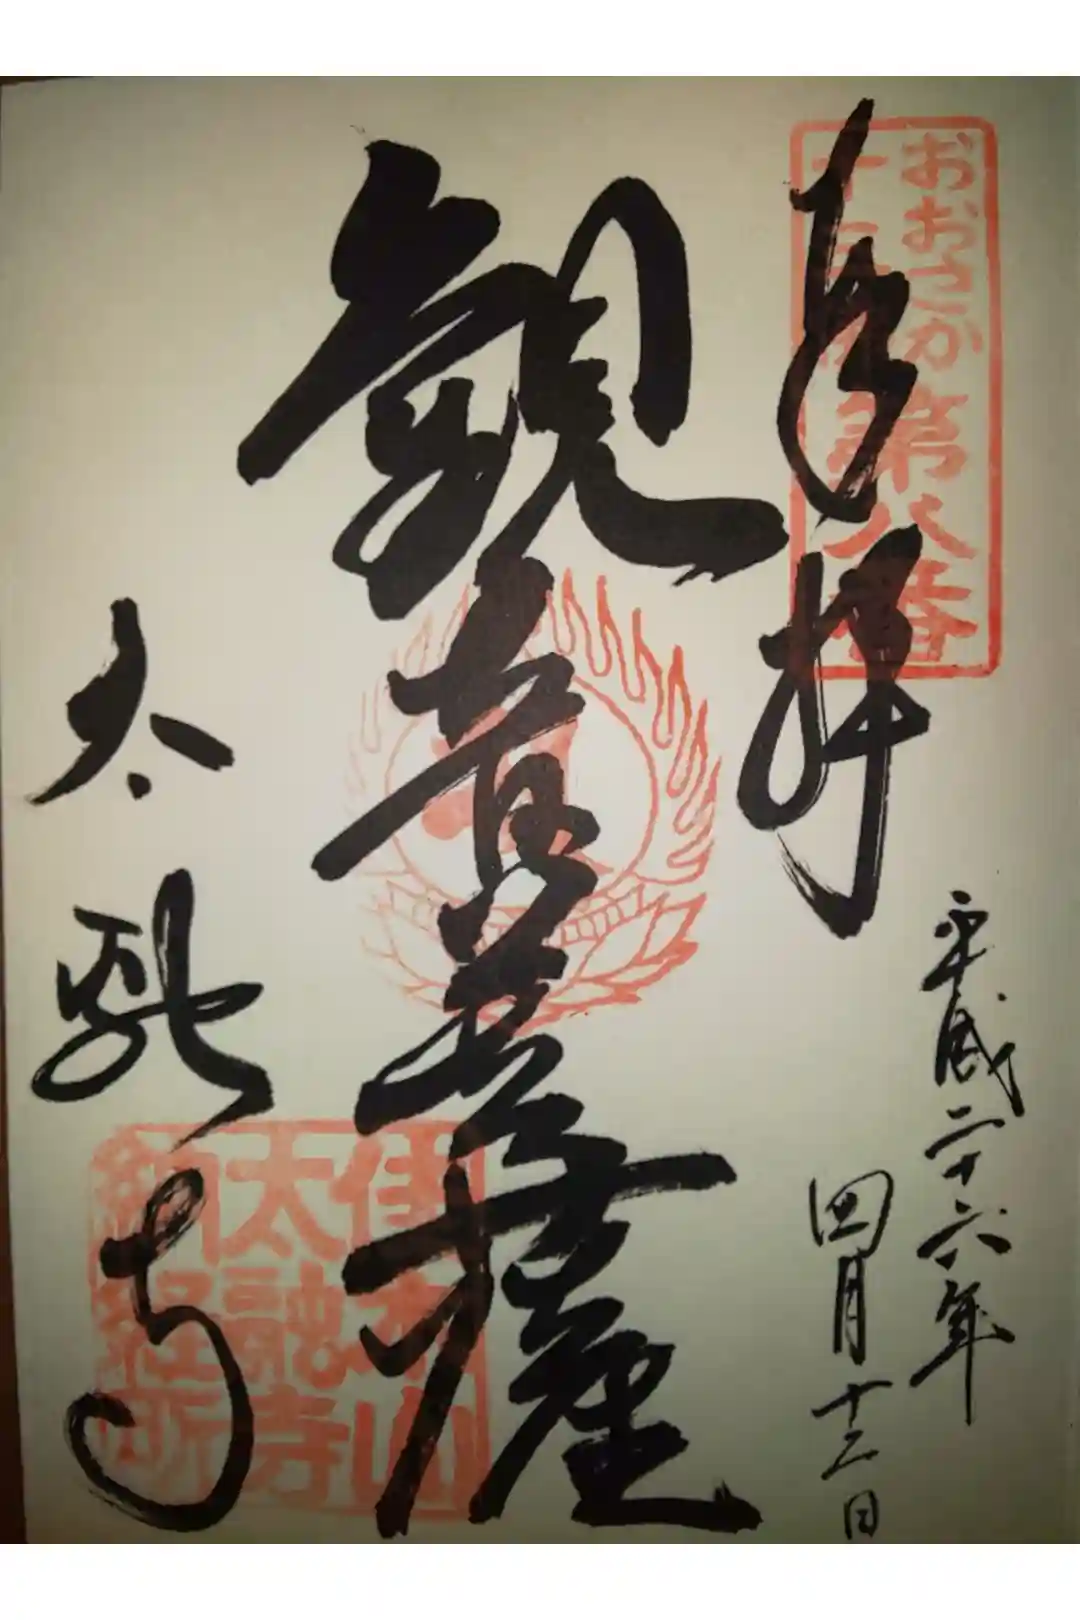 おおさか
十三佛
第八番
奉拝
平成二十六年
四月十三日
観音菩薩
太融寺
佳木山
太融寺
納経所